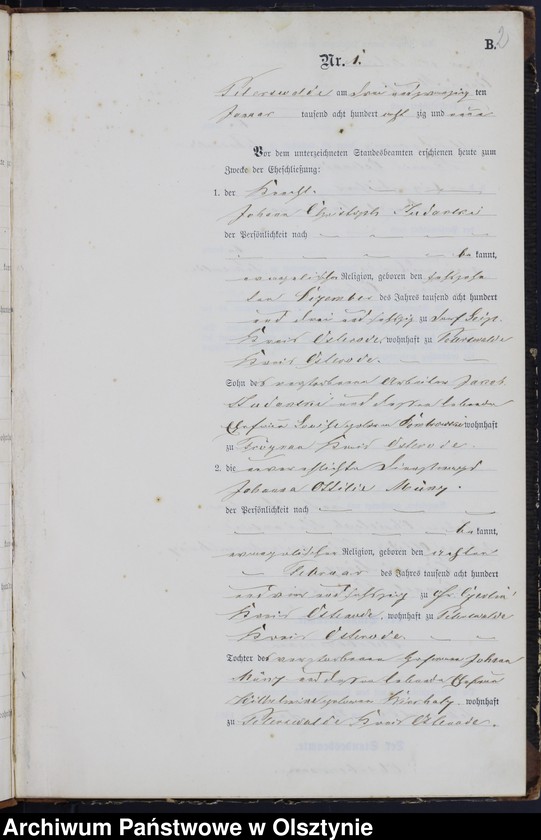 B. 2
Nr. 1.
Peterswalde am drei und zwanzig ten
Januar tausend acht hundert acht zig und neun
Vor dem unterzeichneten Standesbeamten erschienen heute zum
Zwecke der Eheschließung:
1. der Knecht
Johann Christoph
der Persönlichkeit nach
be kannt,
evangelischer Religion, geboren den
ten Dezember des Jahres tausend acht hundert
und drei und sechzig zu Dorf
Kreis Osterode, wohnhaft zu Peterswalde
Kreis Osterode.
Sohn des verstorbenen Arbeiters Jacob
und dessen lebenden
Ehefrau Louise geborenen wohnhaft
zu Kreis Osterode.
2. die unverehelichte Dienstmagd
Johanna Ottilie
der Persönlichkeit nach
be kannt,
evangelischer Religion, geboren den achten
Februar des Jahres tausend acht hundert
und vier und sechzig zu Gr.
Kreis Osterode, wohnhaft zu Peterswalde
Kreis Osterode.
Tochter des verstorbenen Johann
und dessen lebenden Ehefrau
Wilhelmine geborenen wohnhaft
zu Peterswalde Kreis Osterode.
Archiwum Państwowe w Olsztynie